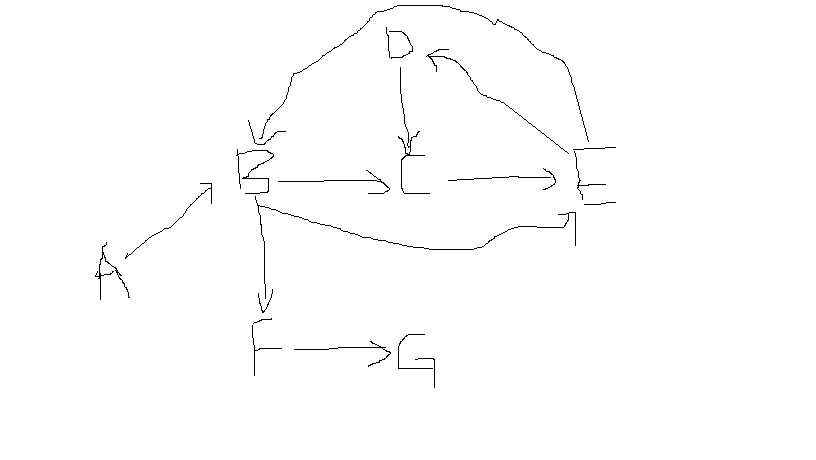 D
B C E
A
F G